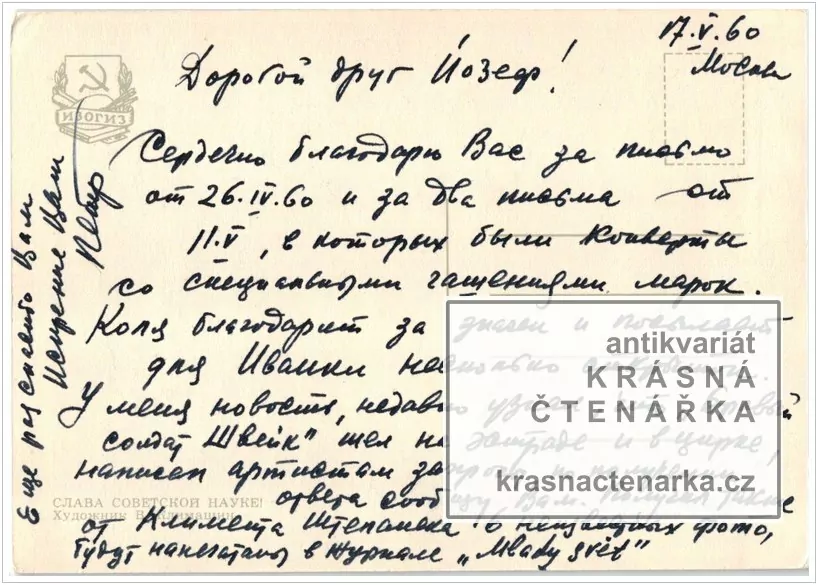 17.V.60
Москва
Дорогой друг Йозеф!
ИЗОГИЗ
Сердечно благодарю Вас за письмо
от 26.IV.60 и за два письма от
11.V, в которых были конверты
со специальными гашениями марок.
Коля благодарит за значок и посылает
для Иванки несколько открыток.
У меня новость, недавно узнал, что "Бравый
солдат Швейк" шел на эстраде и в цирке!
написал артистам
ответа сообщу Вам. Получил также
от Климента Штепанека 16 неизвестных фото,
будут напечатаны в журнале „Mladý svět"
Еще раз спасибо Вам
Искренне Ваш
Петр
СЛАВА СОВЕТСКОЙ НАУКЕ!
Художник В.
antikvariát
KRÁSNÁ
ČTENÁŘKA
krasnactenarka.cz